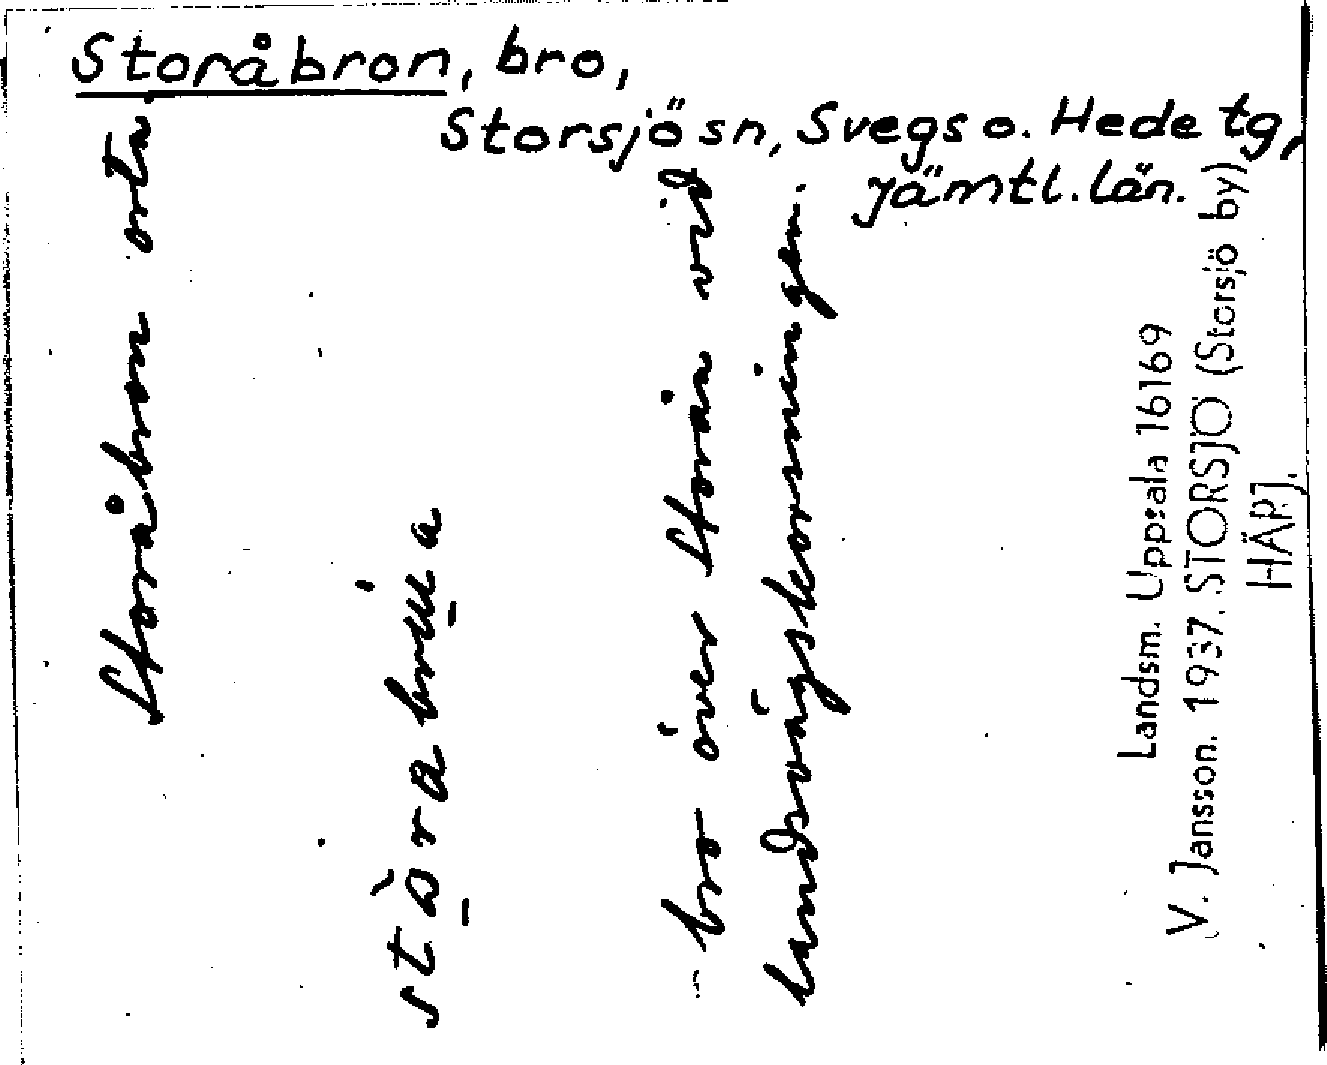 Storåbron, bro,
Storsjö sn, Svegs o. Hede tg,
Jämtl. län.
Storåbron ortn.
bro över Storån vid
landsvägskorsningen.
Landsm. Uppsala 16169
V. Jansson. 1937. STORSJÖ (Storsjö by)
HÄRJ.